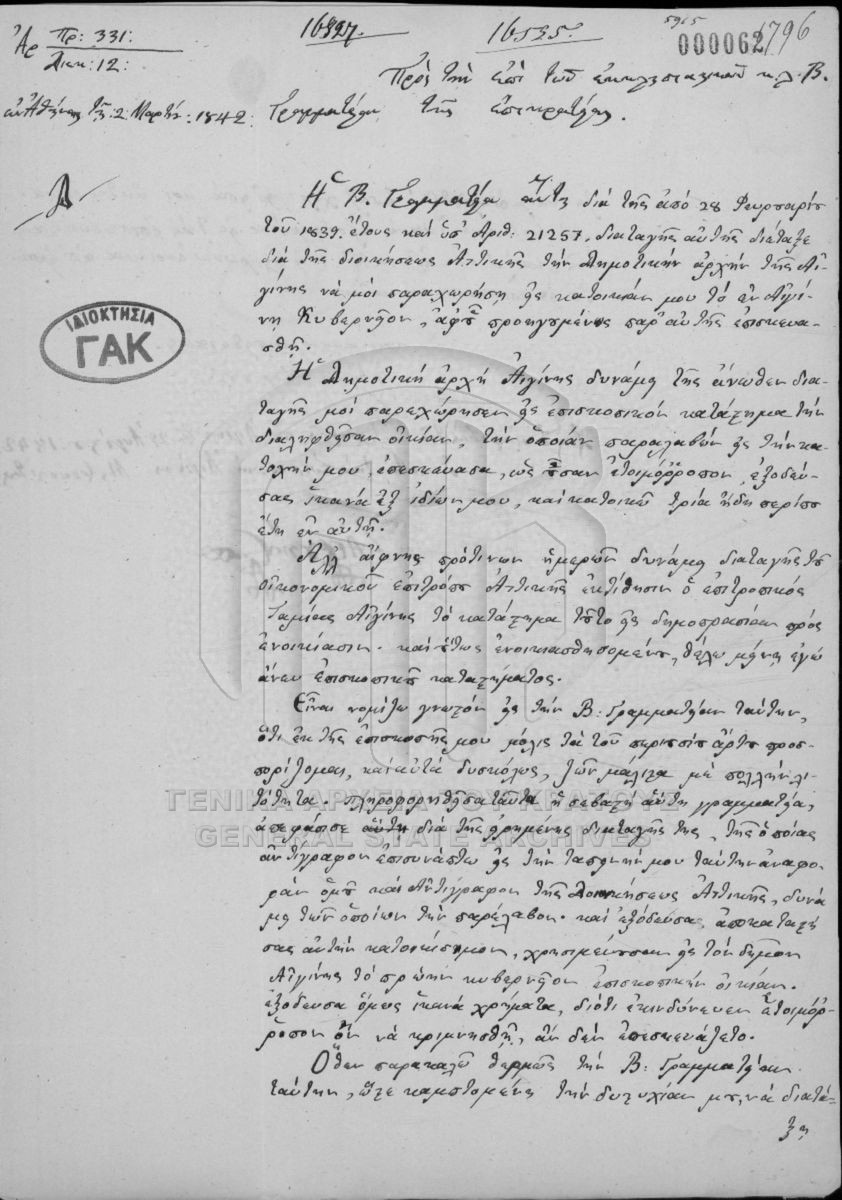 Ἀρ Πρ: 331:
Διεκ: 12:
16327.
16535.
5965
000062
1796
Πρὸς τὴν ἐπὶ τῶν ἐκκλησιαστικῶν κ.λ. Β.
ἐν Ἀθήναις τῇ: 2: Μαρτίου: 1842:
Γραμματείαν τῆς ἐπικρατείας.
Ἡ Β. Γραμματεία αὕτη διὰ τῆς ἀπὸ 28 Φευρουαρίου
τοῦ 1839. ἔτους καὶ ὑπ' Ἀριθ: 21257. διαταγῆς αὐτῆς διέταξε
διὰ τῆς διοικήσεως Ἀττικῆς τὴν Δημοτικὴν ἀρχὴν τῆς Αἰ-
γίνης νὰ μοὶ παραχωρήση εἰς κατοικίαν μου τὸ ἐν Αἰγί-
νη Κυβερνεῖον, ἀφοῦ προηγουμένως παρ' αὐτῆς ἐπισκευα-
σθῆ.
ΙΔΙΟΚΤΗΣΙΑ
ΓΑΚ
Ἡ Δημοτικὴ ἀρχὴ Αἰγίνης δυνάμει τῆς ἄνωθεν δια-
ταγῆς μοὶ παρεχώρησεν εἰς ἐπισκοπικὸν κατάστημα τὴν
διαληφθεῖσαν οἰκίαν, τὴν ὁποίαν παραλαβὼν εἰς τὴν κα-
τοχήν μου, ἐπεσκεύασα, ὡς οὖσαν ἑτοιμόρροπον, ἐξοδεύ-
σας ἱκανὰ ἐξ ἰδίων μου, καὶ κατοικῶ τρία ἤδη περίπου
ἔτη ἐν αὐτῇ.
Ἀλλ' αἴφνης πρό τινων ἡμερῶν δυνάμει διαταγῆς τοῦ
οἰκονομικοῦ ἐπιτρόπου Ἀττικῆς ἐκτίθησιν ὁ ἐπιτροπικὸς
Ταμίας Αἰγίνης τὸ κατάστημα τοῦτο εἰς δημοπρασίαν πρὸς
ἐνοικίασιν. καὶ οὕτως ἐνοικιασθησομένου, θέλω μείνει ἐγὼ
ἄνευ ἐπισκοπικοῦ καταστήματος.
Εἶναι νομίζω γνωστὸν εἰς τὴν Β: Γραμματείαν ταύτην,
ὅτι ἐκ τῆς ἐπισκοπῆς μου μόλις τὰ τοῦ περιουσίου ἄρτου προσ-
πορίζομαι, καὶ αὐτὰ δυσκόλως, ζῶν μάλιστα μὲ πολλὴν λι-
τότητα. Πληροφορηθεῖσα ταῦτα ἡ σεβαστὴ αὕτη γραμματεία,
ἀπεφάσισε διὰ τῆς εἰρημένης διαταγῆς της, τῆς ὁποίας
ἀντίγραφον ἐπισυνάπτω εἰς τὴν ταπεινήν μου ταύτην ἀναφο-
ρὰν ὁμοῦ καὶ Ἀντίγραφον τῆς Διοικήσεως Ἀττικῆς, δυνά-
μει τῶν ὁποίων τὴν παρέλαβον. καὶ ἐξόδευσα, ἀποκαταστή-
σας αὐτὴν κατοικήσιμον, χρησιμεύουσαν εἰς τὸν δῆμον
Αἰγίνης τὸ πρώην κυβερνεῖον ἐπισκοπικὴν οἰκίαν.
ἐξόδευσα ὅμως ἱκανὰ χρήματα, διότι ἐκινδύνευεν ἑτοιμόρ-
ροπον ὂν νὰ κρημνισθῆ, ἂν δὲν ἐπεσκευάζετο.
Ὅθεν παρακαλῶ θερμῶς τὴν Β: Γραμματείαν
ταύτην, ὥστε καμπτομένη τὴν δυστυχίαν μου, νὰ διατά-
ξη
ΓΕΝΙΚΑ ΑΡΧΕΙΑ ΤΟΥ ΚΡΑΤΟΥΣ
GENERAL STATE ARCHIVES